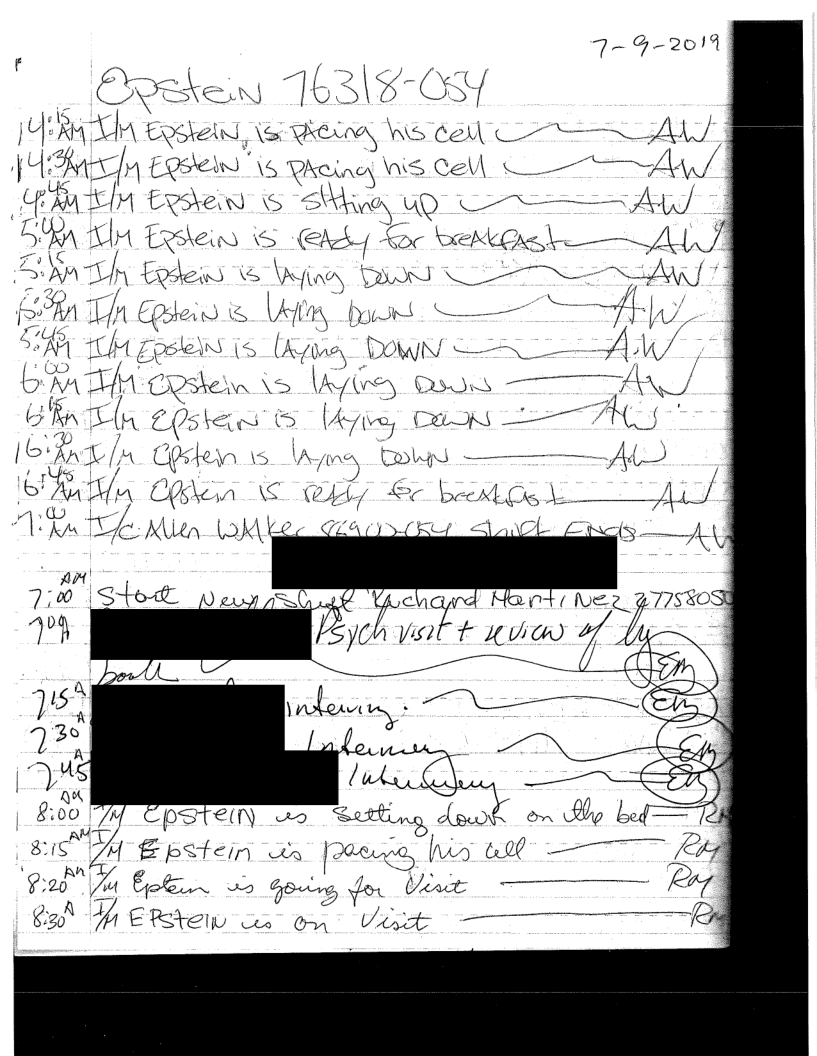 7-9-2019
Epstein 76318-054
4:15 AM I/M Epstein is pAcing his cell AW
4:30 AM I/M Epstein is pAcing his cell AW
4:45 AM I/M Epstein is sitting up AW
5:00 AM I/M Epstein is reAdy for breAkfAst AW
5:15 AM I/M Epstein is lAying Down AW
5:30 AM I/M Epstein is lAying Down A.W
5:45 AM I/M Epstein is lAying DOWN A.W
6:00 AM I/M Epstein is lAying Down AW
6:15 AM I/M Epstein is lAying Down AW
6:30 AM I/M Epstein is lAying Down AW
6:45 AM I/M Epstein is reAdy for breakfast AW
7:00 AM I/C Allen WAlker shift Ends AW
7:00 AM Start New shift Richard Martinez 27758050
709 Psych visit + review of log
book EM
715 A EM
730 A EM
745 A EM
8:00 AM I/M Epstein is setting down on the bed RM
8:15 AM I/M Epstein is pacing his cell RM
8:20 AM I/M Eptein is going for Visit RM
8:30 A I/M EPStein is on Visit RM